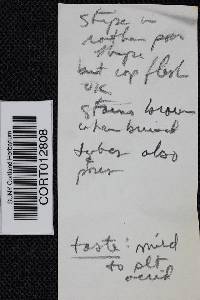 stipe in
rather poor
shape
but cap flesh
OK
stains brown
when bruised
tubes also
& pores
taste: mild
to slt
acid
SUNY Cortland Herbarium
CORT012808